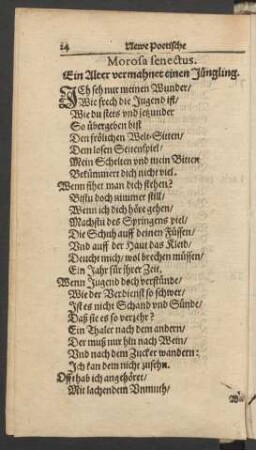 24 Newe Poetische
Morosa senectus.
Ein Alter vermahnet einen Jüngling.
ICh seh nur meinen Wunder/
Wie frech die Jugend ist/
Wie du stets vnd jetzunder
So übergeben bist
Den frölichen Welt-Sitten/
Dem losen Seitenspiel/
Mein Schelten vnd mein Bitten
Bekümmert dich nicht viel.
Wenn siher man dich stehen?
Bistu doch nimmer still/
Wenn ich dich höre gehen/
Machstu des Springens viel/
Die Schuh auff deinen Füssen/
Vnd auff der Haut das Kleid/
Deucht mich/ wol brechen müssen/
Ein Jahr für jhrer Zeit.
Wenn Jugend doch verstünde/
Wie der Verdienst so schwer/
Ist es nicht Schand vnd Sünde/
Daß sie es so verzehr?
Ein Thaler nach dem andern/
Der muß nur hin nach Wein/
Vnd nach dem Zucker wandern:
Ich kan dem nicht zusehn.
Offt hab ich angehöret/
Mit lachendem Vnmuth/